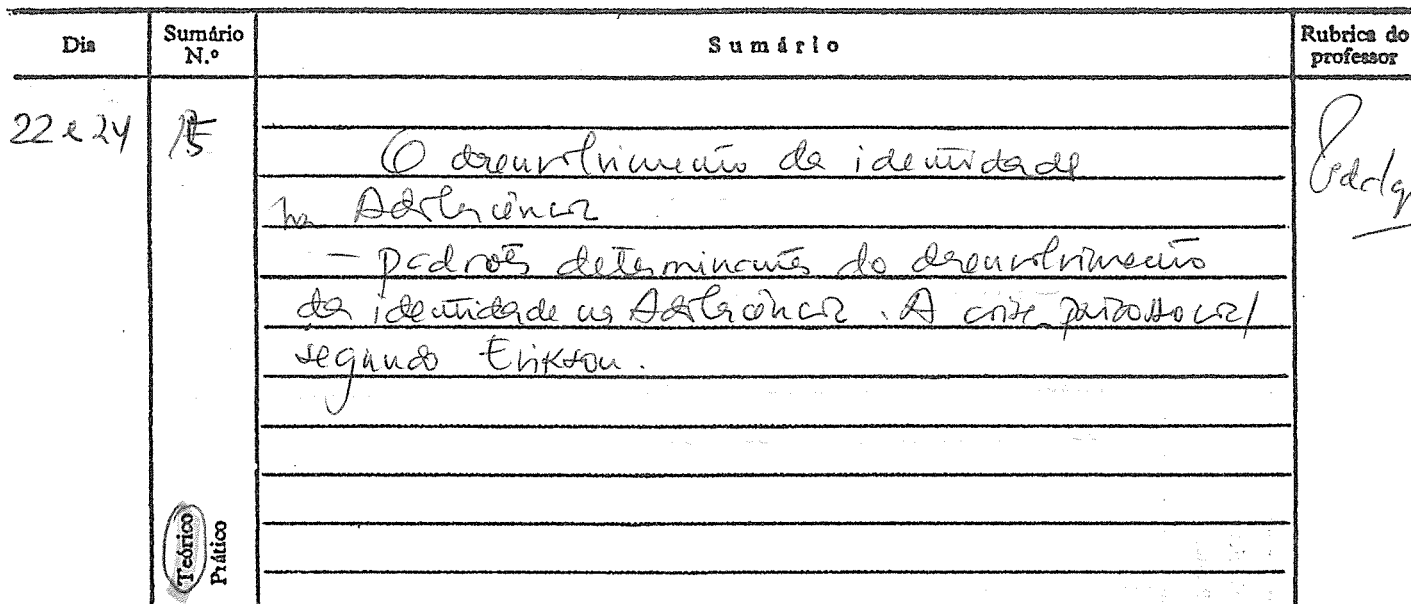 Dia Sumário N.º Sumário Rubrica do professor
22 e 24 15
O desenvolvimento da identidade
na Adolescência
— padrões determinantes do desenvolvimento
da identidade na Adolescência. A crise psicossocial
segundo Erikson.
Teórico
Prático